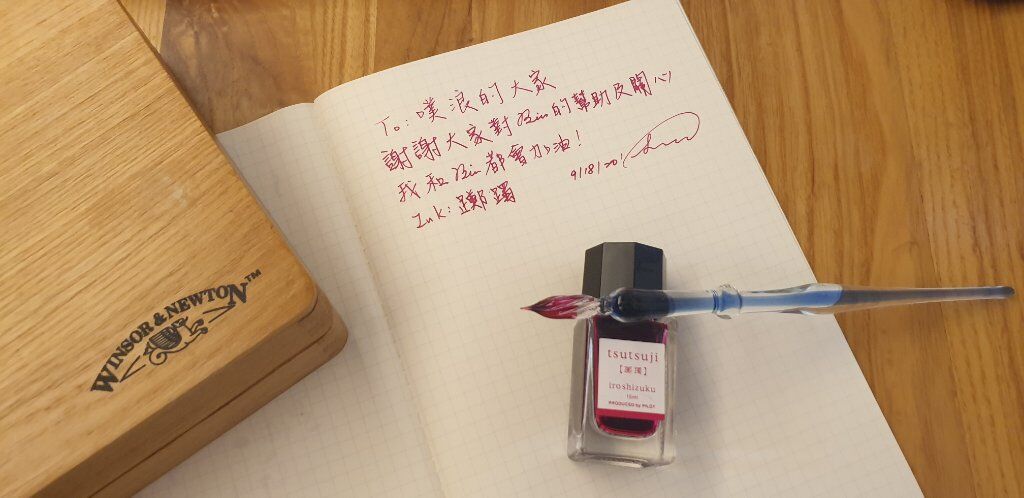 To: 噗浪的大家
謝謝大家對Bin的幫助及關心
我和Bin都會加油！
9/18/20'
Ink: 躑躅
WINSOR & NEWTON™
tsutsuji
【躑躅】
iroshizuku
15ml
PRODUCED by PILOT